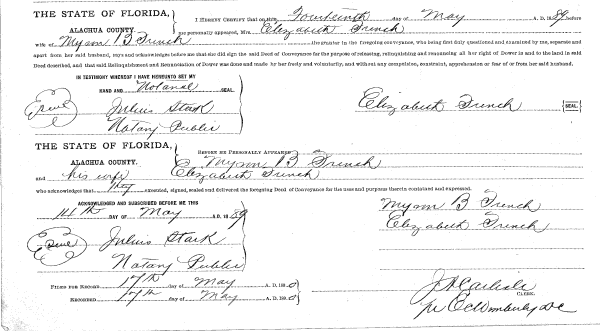 THE STATE OF FLORIDA,
ALACHUA COUNTY.
I HEREBY CERTIFY that on this Fourteenth day of May A. D. 1889 before
me personally appeared, Mrs. Elizabeth French
wife of Myron B French the grantor in the foregoing conveyance, who being first duly questioned and examined by me, separate and
apart from her said husband, says and acknowledges before me that she did sign the said Deed of Conveyance for the purpose of relinquishing and renouncing all her right of Dower in and to the land in said
Deed described, and that said Relinquishment and Renunciation of Dower was done and made by her freely and voluntarily, and without any compulsion, constraint, apprehension or fear of or from her said husband.
IN TESTIMONY WHEREOF I HAVE HEREUNTO SET MY
HAND AND Notarial SEAL.
Julius Stark
Notary Public
Elizabeth French (SEAL)
THE STATE OF FLORIDA,
ALACHUA COUNTY.
BEFORE ME PERSONALLY APPEARED Myron B French
and his wife Elizabeth French
who acknowledges that they executed, signed, sealed and delivered the foregoing Deed of Conveyance for the uses and purposes therein contained and expressed.
ACKNOWLEDGED AND SUBSCRIBED BEFORE ME THIS
14th DAY OF May A. D. 1889
Julius Stark
Notary Public
Myron B French
Elizabeth French
FILED FOR RECORD 17th day of May A. D. 188
RECORDED 17th day of May A. D. 188
J A Carlisle
CLERK.
pr E C Wimberly DC